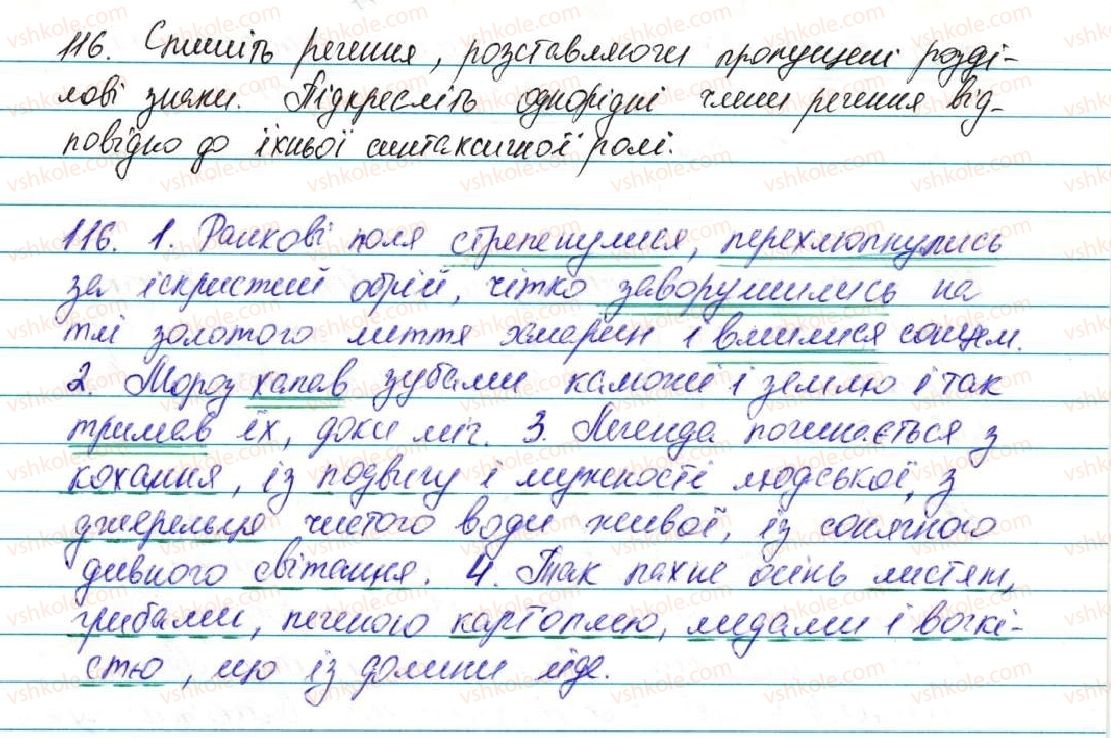 116. Спишіть речення, розставляючи пропущені розді-
лові знаки. Підкресліть однорідні члени речення від-
повідно до їхньої синтаксичної ролі.
116. 1. Ранкові поля стрепенулися, перехлюпнулись
за іскристий обрій, чітко заворушились на
тлі золотого шиття хмарин і вмилися сонцем.
2. Мороз хапав зубами каміння і землю і так
тримав їх, доки міг. 3. Легенда починається з
кохання, із подвигу і мужності людської, з
джерельця чистого води живої, із сонячного
дивного світання. 4. Так пахне осінь листям,
грибами, печеною картоплею, медами і вогкі-
стю, що із долини йде.